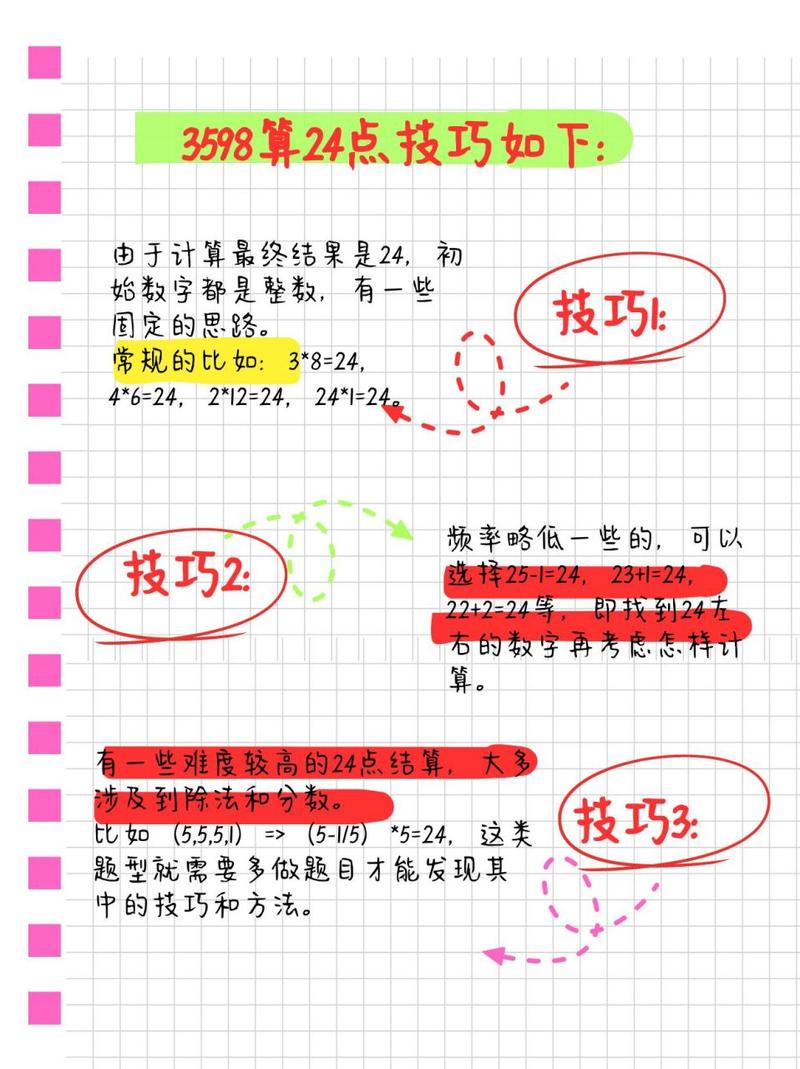 3598算24点技巧如下:
由于计算最终结果是24, 初
始数字都是整数, 有一些
固定的思路。
常规的比如: 3*8=24,
4*6=24, 2*12=24, 24*1=24。
技巧1:
技巧2:
频率略低一些的, 可以
选择25-1=24, 23+1=24,
22+2=24等, 即找到24左
右的数字再考虑怎样计
算。
有一些难度较高的24点结算, 大多
涉及到除法和分数。
比如 (5,5,5,1) => (5-1/5) *5=24, 这类
题型就需要多做题目才能发现其
中的技巧和方法。
技巧3: